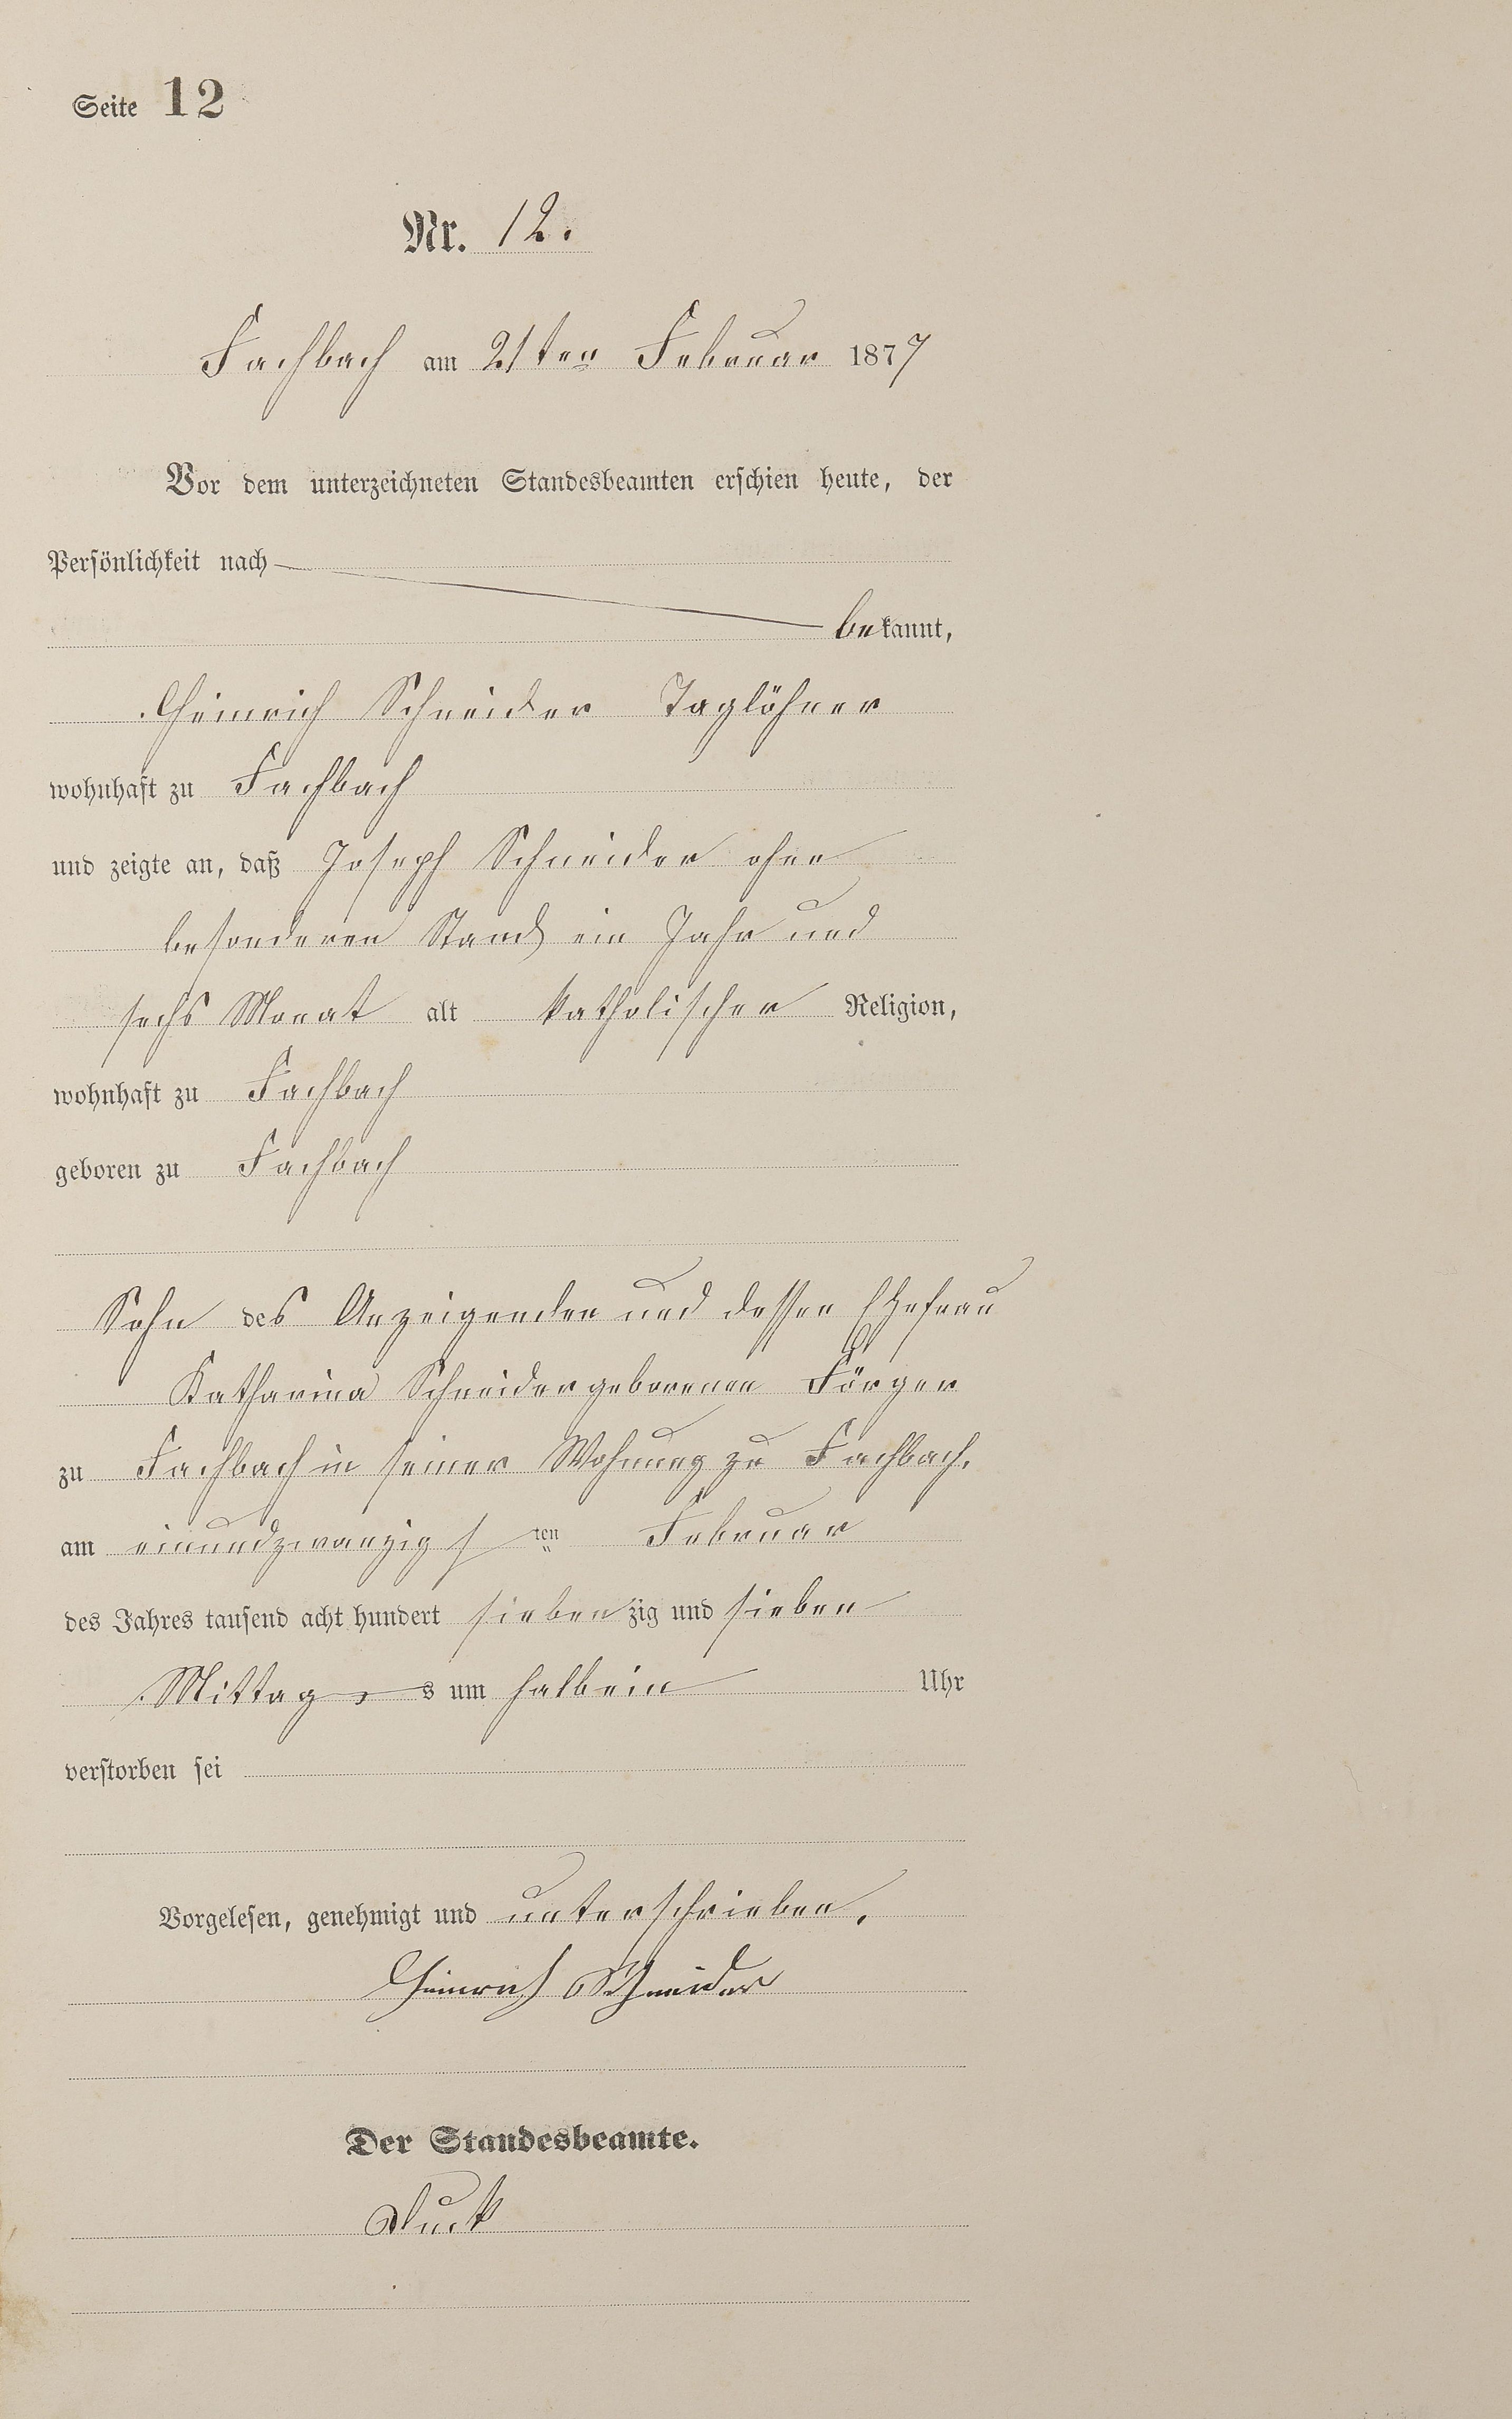 Seite 12
Nr. 12.
Fachbach am 21ten Februar 1877
Vor dem unterzeichneten Standesbeamten erschien heute, der
Persönlichkeit nach
bekannt,
Heinrich Schneider Taglöhner
wohnhaft zu Fachbach
und zeigte an, daß Joseph Schneider ohne
besonderen Stand ein Jahr und
sechs Monat alt katholischer Religion,
wohnhaft zu Fachbach
geboren zu Fachbach
Sohn des Anzeigenden und dessen Ehefrau
Katharina Schneider geborenen Förger
zu Fachbach in seiner Wohnung zu Fachbach.
am einundzwanzigsten Februar
des Jahres tausend acht hundert siebenzig und sieben
Mittags um halb ein Uhr
verstorben sei
Vorgelesen, genehmigt und unterschrieben.
Heinrich Schneider
Der Standesbeamte.